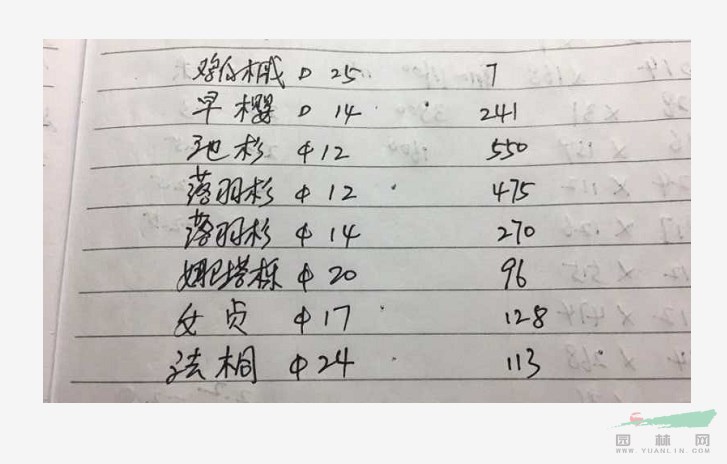 鸡爪槭 D 25 7
早樱 D 14 241
池杉 φ12 550
落羽杉 φ 12 475
落羽杉 φ 14 270
娜塔栎 φ 20 96
女贞 φ17 128
法桐 φ24 113
园林网
WWW.YUANLIN.COM